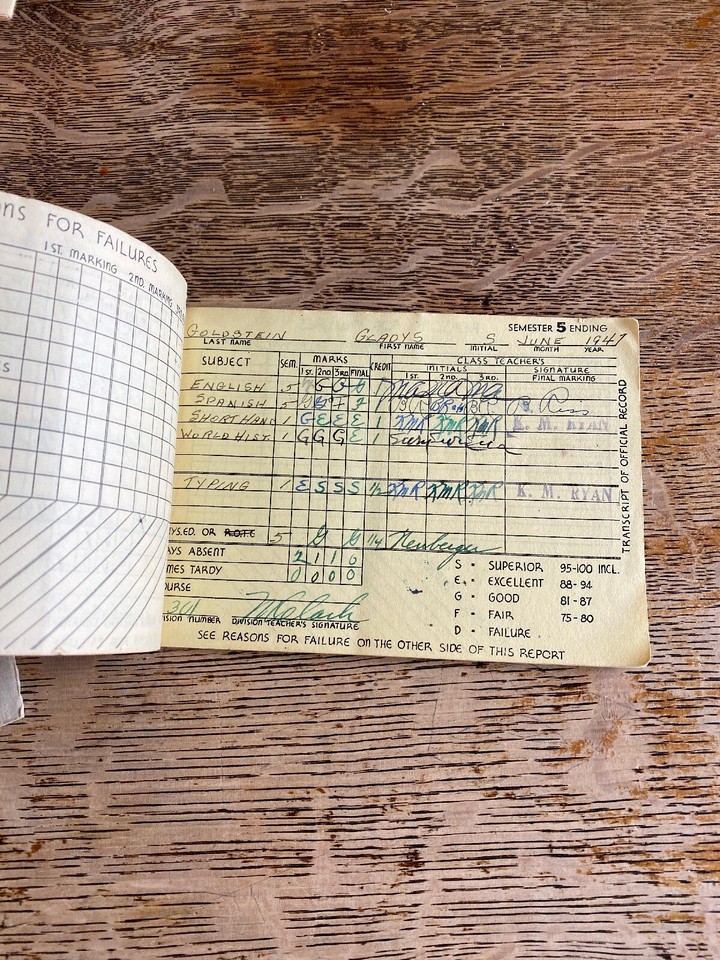 FOR FAILURES
1ST. MARKING 2ND. MARKING
SEMESTER 5 ENDING
GOLDSTEIN GLADYS S JUNE 1947
LAST NAME FIRST NAME INITIAL MONTH YEAR
SUBJECT SEM. MARKS CREDIT CLASS TEACHER'S
INITIALS SIGNATURE
1ST. 2ND 3RD FINAL 1ST. 2ND. 3RD. FINAL MARKING
ENGLISH 5 G G G 1
SPANISH 5 G F F 1
SHORTHAND 1 G E E E 1 KMR KMR KMR K. M. RYAN
WORLD HIST. 1 G G G E 1
TYPING 1 E S S S 1/2 KMR KMR KMR K. M. RYAN
YS.ED. OR R.O.T.C 5 G G 1/4 Neuberger
AYS ABSENT 2 1 1 6
MES TARDY 0 0 0 0
OURSE
301
ISION NUMBER DIVISION TEACHER'S SIGNATURE
S - SUPERIOR 95-100 INCL.
E - EXCELLENT 88-94
G - GOOD 81-87
F - FAIR 75-80
D - FAILURE
SEE REASONS FOR FAILURE ON THE OTHER SIDE OF THIS REPORT
TRANSCRIPT OF OFFICIAL RECORD